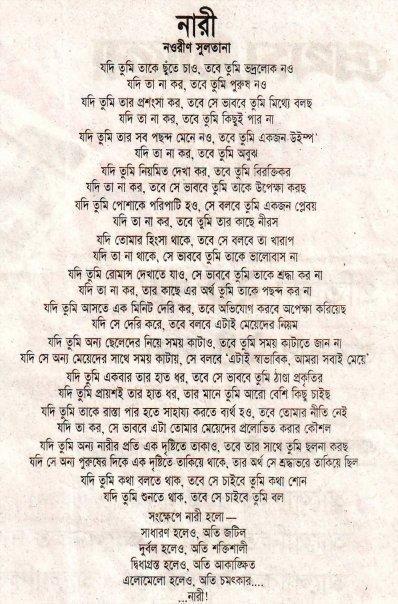 নারী
নওরীণ সুলতানা
যদি তুমি তাকে ছুঁতে চাও, তবে তুমি ভদ্রলোক নও
যদি তা না কর, তবে তুমি পুরুষ নও
যদি তুমি তার প্রশংসা কর, তবে সে ভাববে তুমি মিথ্যে বলছ
যদি তা না কর, তবে তুমি কিছুই পার না
যদি তুমি তার সব পছন্দ মেনে নাও, তবে তুমি একজন উইম্প'
যদি তা না কর, তবে তুমি অবুঝ
যদি তুমি নিয়মিত দেখা কর, তবে তুমি বিরক্তিকর
যদি তা না কর, তবে সে ভাববে তুমি তাকে উপেক্ষা করছ
যদি তুমি পোশাকে পরিপাটি হও, সে বলবে তুমি একজন প্লেবয়
যদি তা না কর, তবে তুমি তার কাছে নীরস
যদি তোমার হিংসা থাকে, তবে সে বলবে তা খারাপ
যদি তা না থাকে, সে ভাববে তুমি তাকে ভালোবাস না
যদি তুমি রোমান্স দেখাতে যাও, সে ভাববে তুমি তাকে শ্রদ্ধা কর না
যদি তা না কর, তার কাছে এর অর্থ তুমি তাকে পছন্দ কর না
যদি তুমি আসতে এক মিনিট দেরি কর, তবে অভিযোগ করবে অপেক্ষা করিয়েছ
যদি সে দেরি করে, তবে বলবে এটাই মেয়েদের নিয়ম
যদি তুমি অন্য ছেলেদের নিয়ে সময় কাটাও, তবে তুমি সময় কাটাতে জান না
যদি সে অন্য মেয়েদের সাথে সময় কাটায়, সে বলবে 'এটাই স্বাভাবিক, আমরা সবাই মেয়ে'
যদি তুমি একবার তার হাত ধর, তবে সে ভাববে তুমি ঠাণ্ডা প্রকৃতির
যদি তুমি প্রায়শই তার হাত ধর, তার মানে তুমি আরো বেশি কিছু চাইছ
যদি তুমি তাকে রাস্তা পার হতে সাহায্য করতে ব্যর্থ হও, তবে তোমার নীতি নেই
যদি তা কর, সে ভাববে এটা তোমার মেয়েদের প্রলোভিত করার কৌশল
যদি তুমি অন্য নারীর প্রতি এক দৃষ্টিতে তাকাও, তবে তার সাথে তুমি ছলনা করছ
যদি সে অন্য পুরুষের দিকে এক দৃষ্টিতে তাকিয়ে থাকে, তার অর্থ সে শ্রদ্ধাভরে তাকিয়ে ছিল
যদি তুমি কথা বলতে থাক, তবে সে চাইবে তুমি কথা শোন
যদি তুমি শুনতে থাক, তবে সে চাইবে তুমি বল
সংক্ষেপে নারী হলো—
সাধারণ হলেও, অতি জটিল
দুর্বল হলেও, অতি শক্তিশালী
দ্বিধাগ্রস্ত হলেও, অতি আকাঙ্ক্ষিত
এলোমেলো হলেও, অতি চমৎকার....
...নারী!